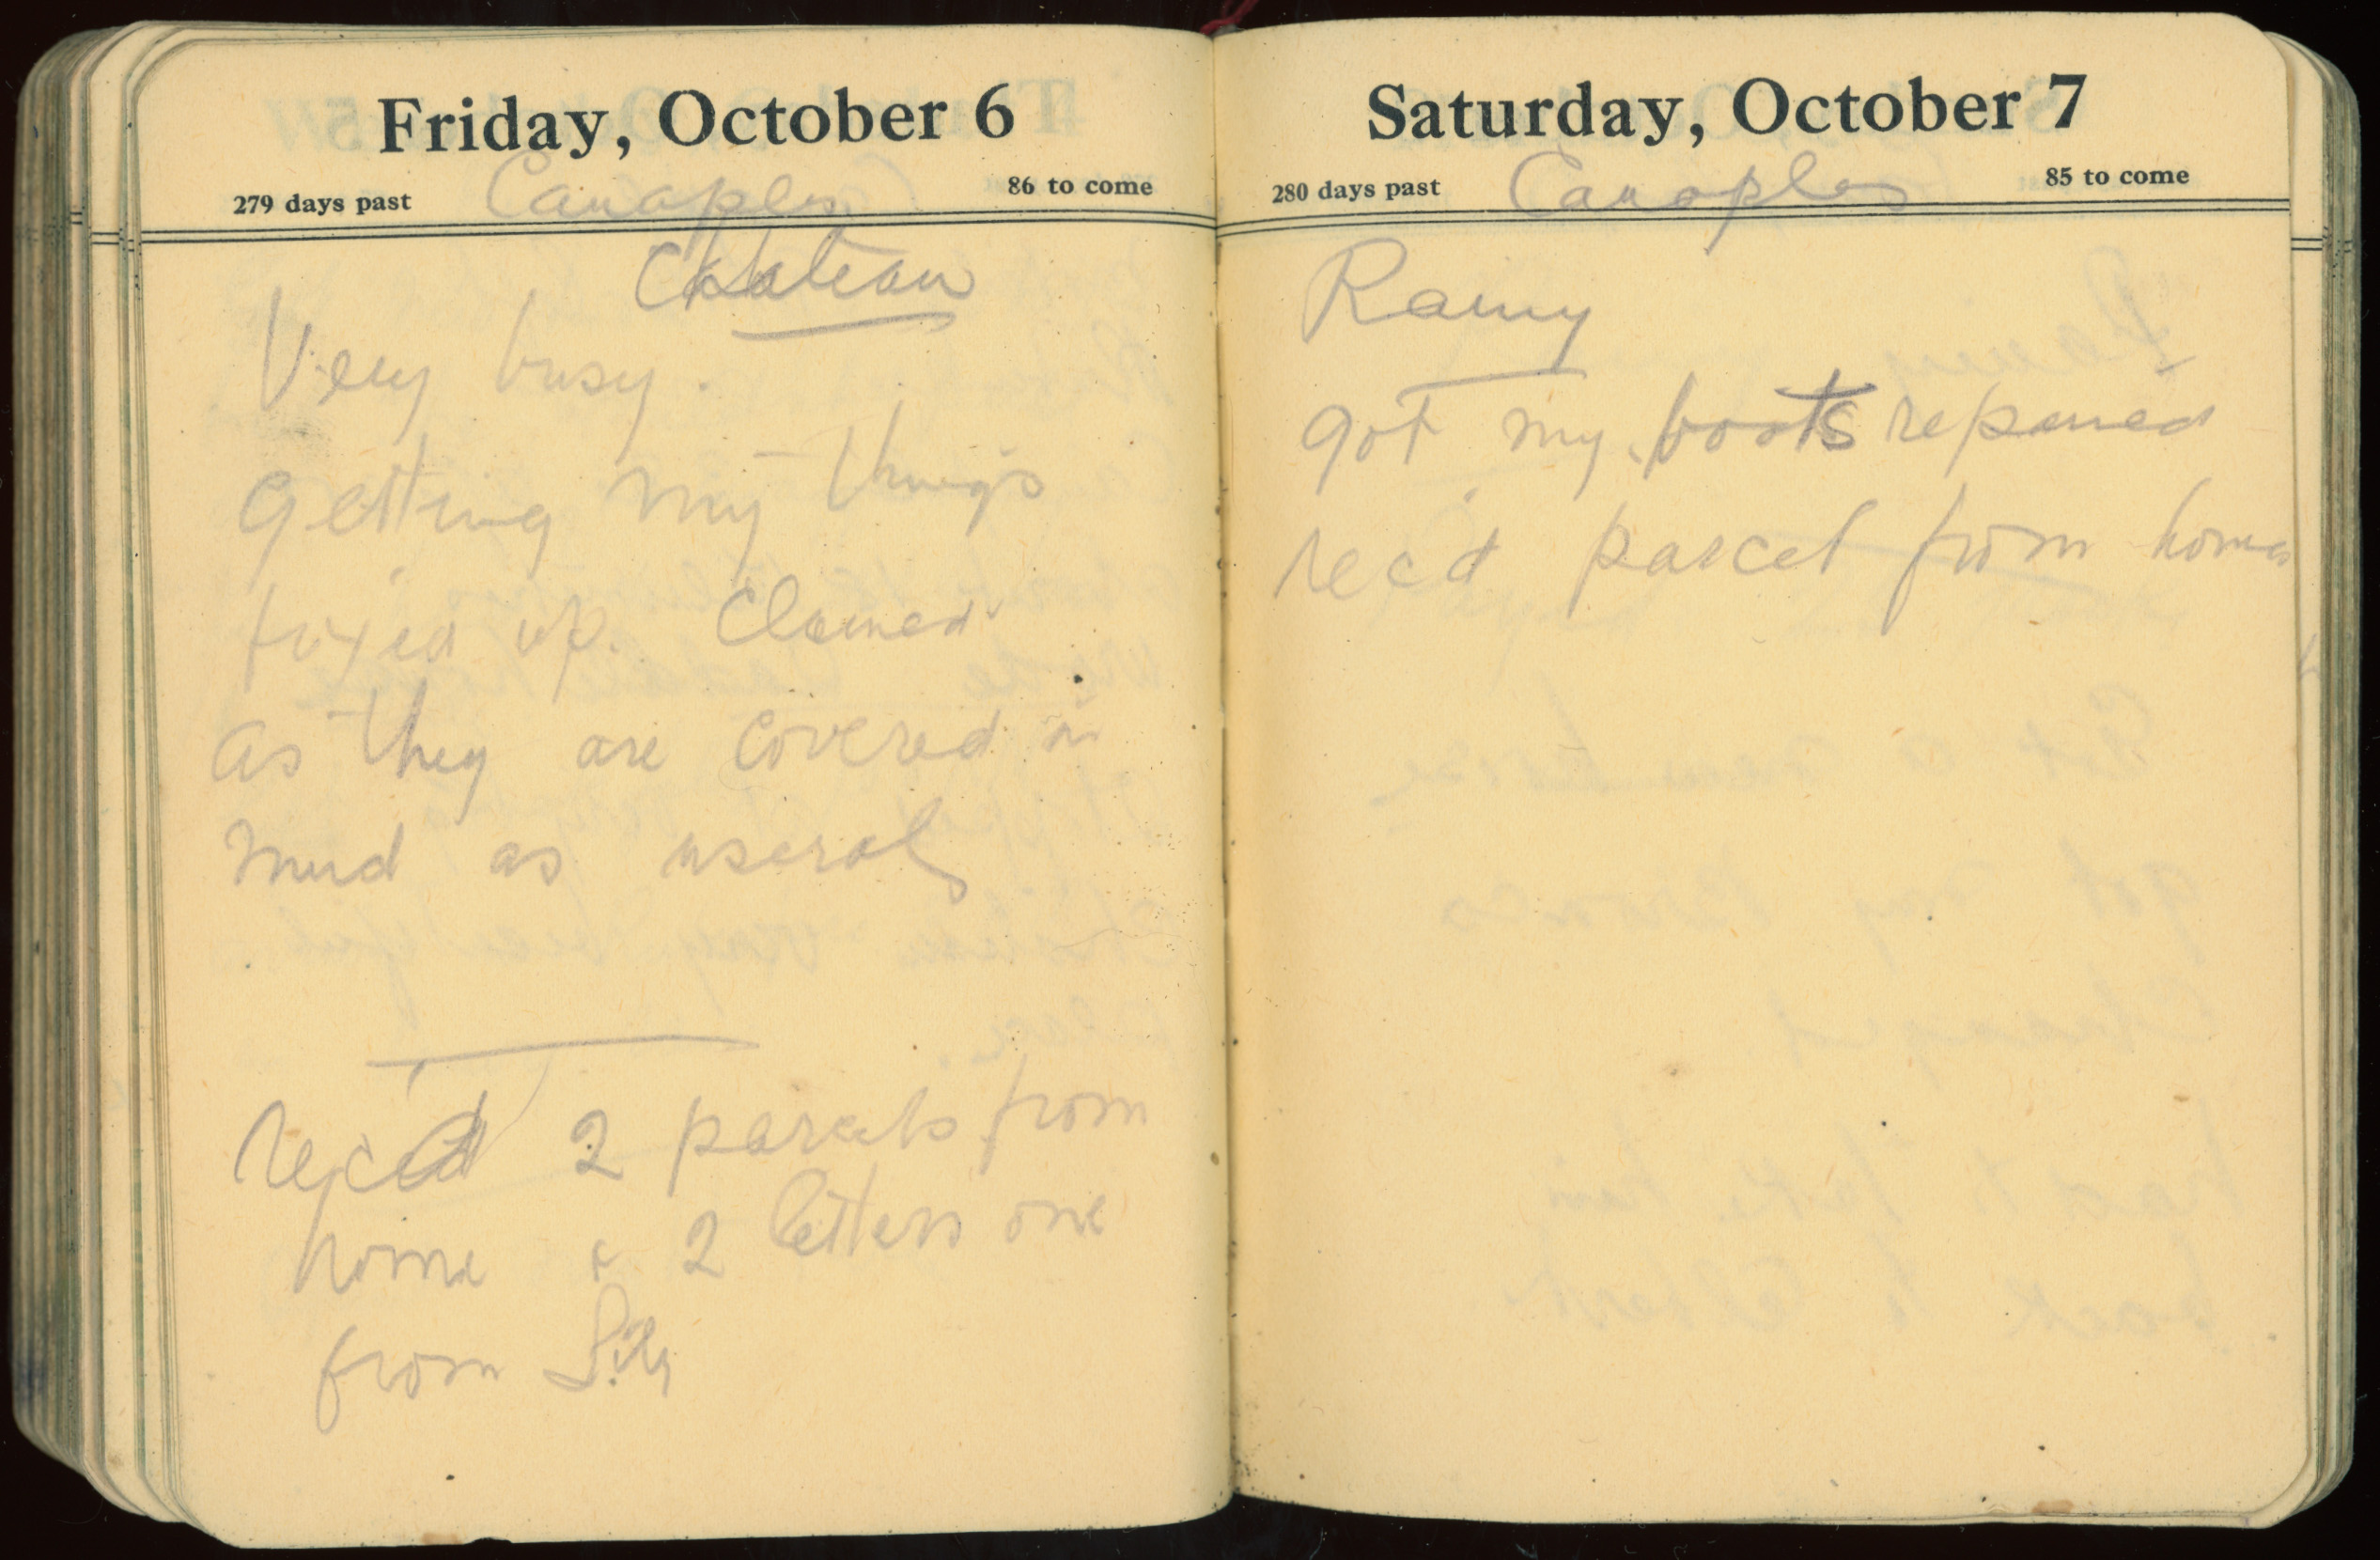 Friday, October 6
279 days past
86 to come
Canaples
Chateau
Very busy.
Getting my things
fixed up. Cleaned
as they are covered in
mud as useral
rec'd 2 parcels from
home & 2 letters one
from
Saturday, October 7
280 days past
85 to come
Canaples
Rainy
got my boots repaired
rec'd parcel from home